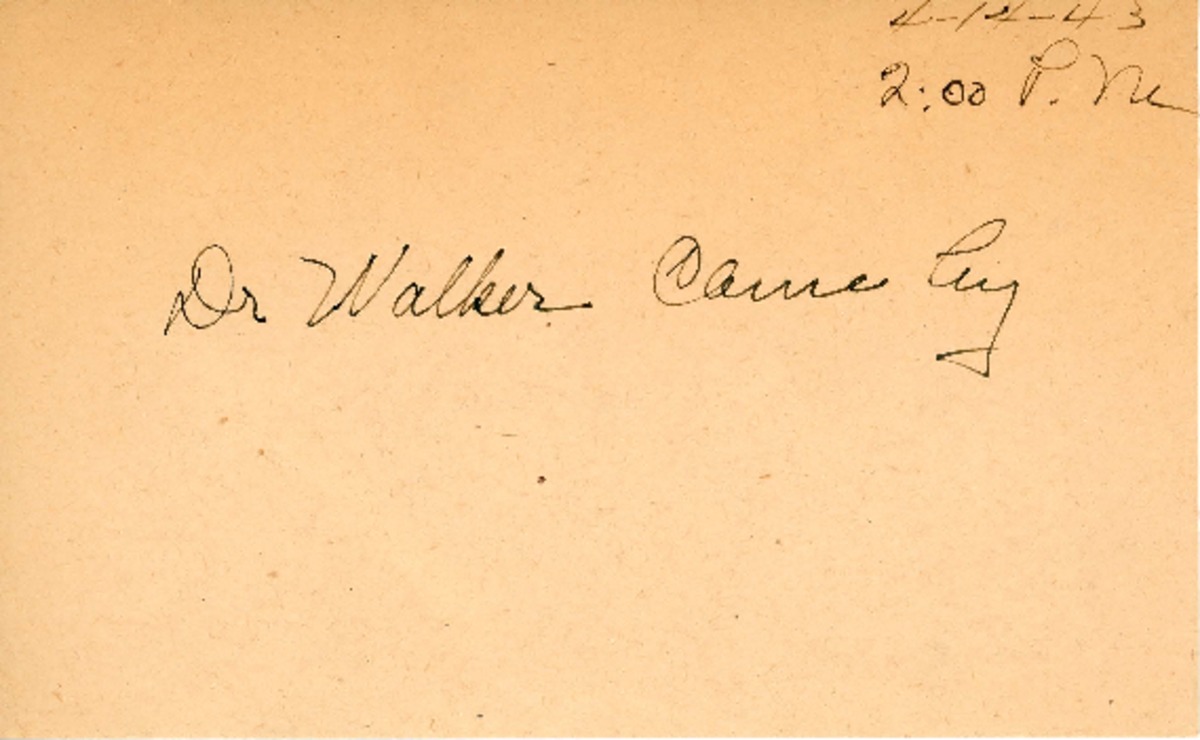 2-12-43
2:00 P.M.
Dr Walker Came by